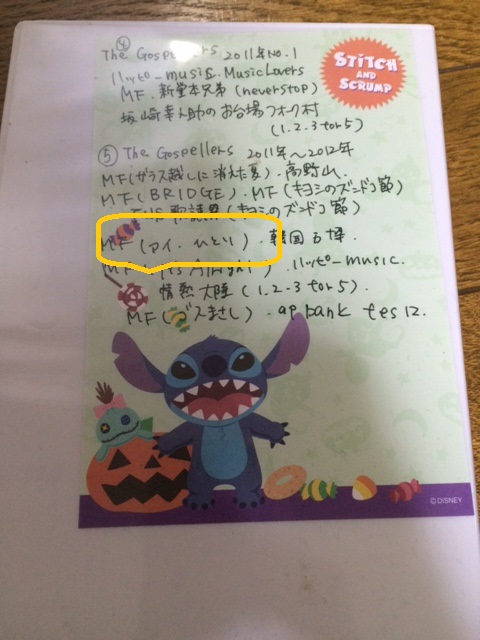 ④
The Gospellers 2011年No.1
ハッピーmusic. Music Lovers
MF. 新堂本兄弟 (neverstop)
坂崎幸之助のお台場フォーク村
(1.2.3 for 5)
STITCH
AND
SCRUMP
⑤ The Gospellers 2011年〜2012年
MF(ガラス越しに消えた夏). 高野山.
MF(BRIDGE). MF(キヨシのズンドコ節)
歌謡界(キヨシのズンドコ節)
MF(アイ. ひとり). 韓国
MF(It's Alright). ハッピーmusic.
情熱大陸(1.2.3 for 5).
MF(ゴスまさし). ap bank fes 12.
©DISNEY